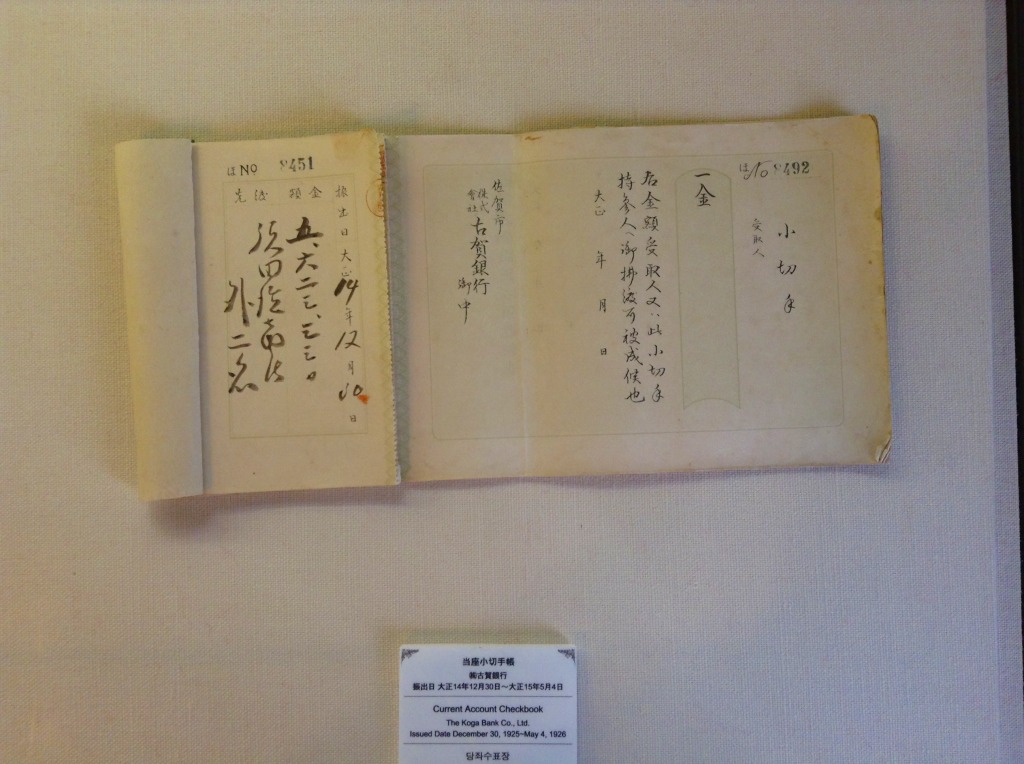 ほ No 492
小切手
受取人
一金
右金額受取人又ハ此小切手
持参人ヘ御拂渡可被成候也
大正 年 月 日
佐賀市
株式會社古賀銀行
御中
ほ No 451
振出日 大正14年12月 日
金額
渡先
外二名
当座小切手帳
㈱古賀銀行
振出日 大正14年12月30日〜大正15年5月4日
Current Account Checkbook
The Koga Bank Co., Ltd.
Issued Date December 30, 1925~May 4, 1926
당좌수표장